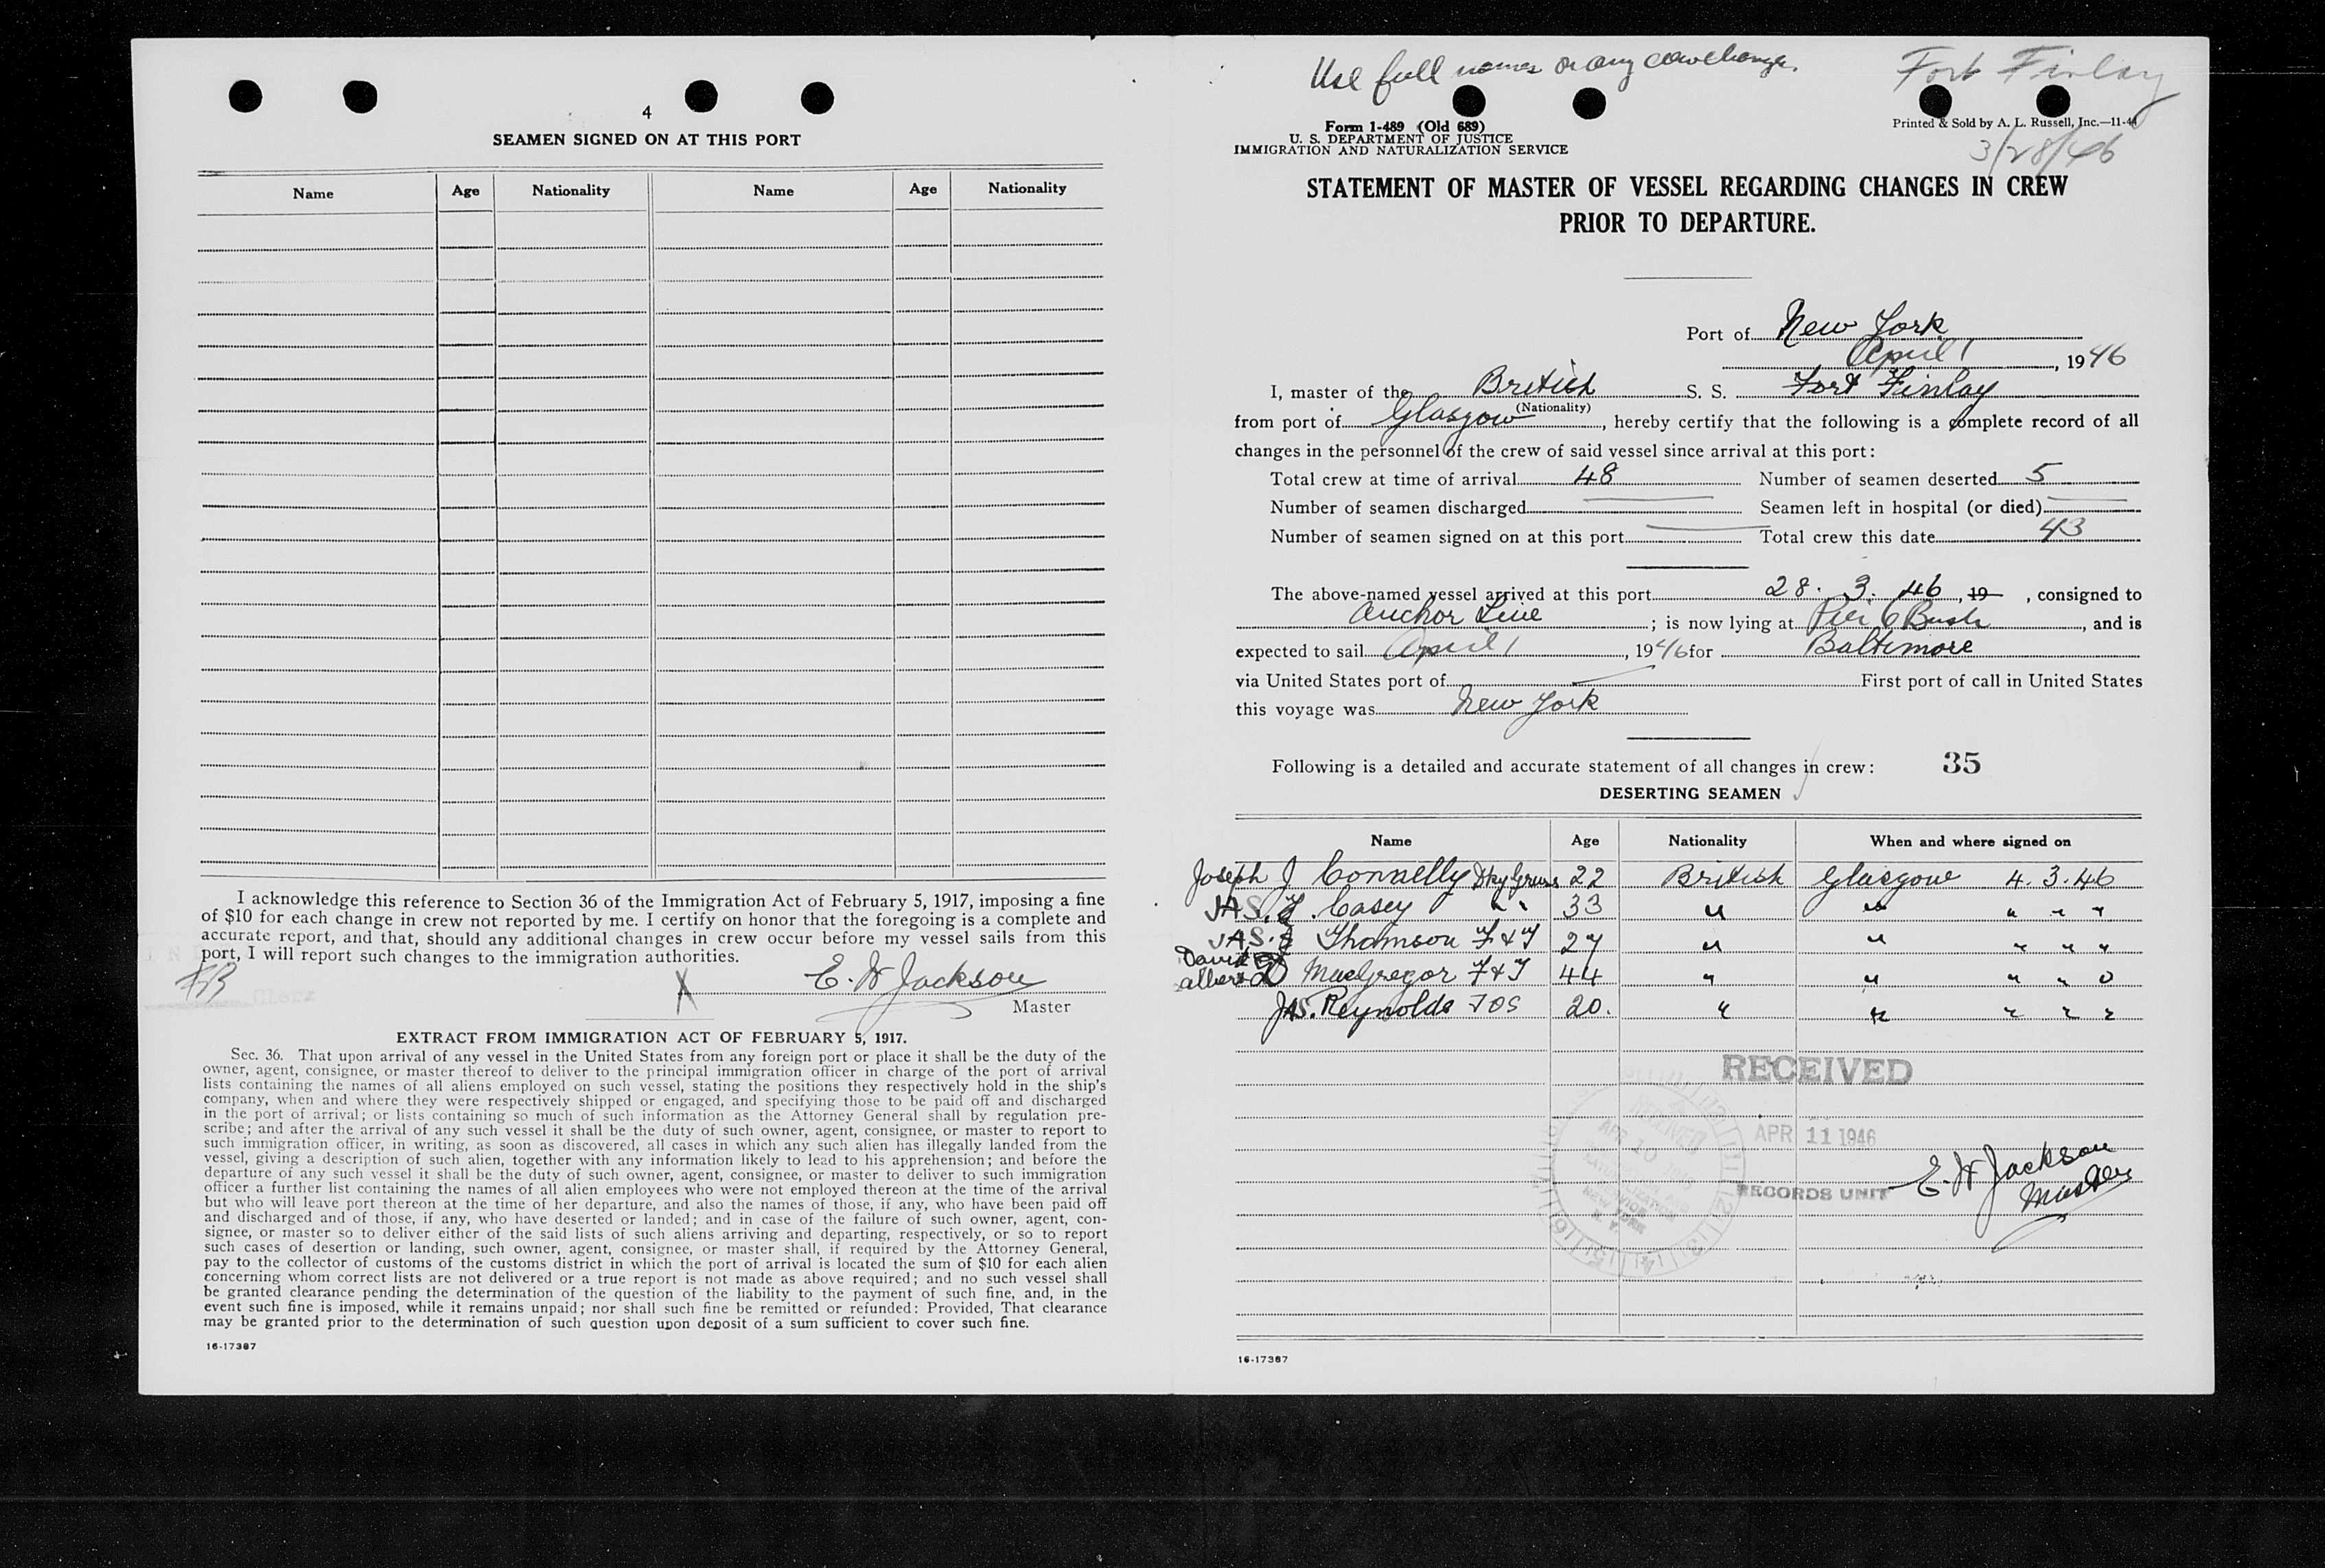 4
SEAMEN SIGNED ON AT THIS PORT
Name Age Nationality Name Age Nationality
I acknowledge this reference to Section 36 of the Immigration Act of February 5, 1917, imposing a fine
of $10 for each change in crew not reported by me. I certify on honor that the foregoing is a complete and
accurate report, and that, should any additional changes in crew occur before my vessel sails from this
port, I will report such changes to the immigration authorities.
X E. W Jackson
Master
EXTRACT FROM IMMIGRATION ACT OF FEBRUARY 5, 1917.
Sec. 36. That upon arrival of any vessel in the United States from any foreign port or place it shall be the duty of the
owner, agent, consignee, or master thereof to deliver to the principal immigration officer in charge of the port of arrival
lists containing the names of all aliens employed on such vessel, stating the positions they respectively hold in the ship's
company, when and where they were respectively shipped or engaged, and specifying those to be paid off and discharged
in the port of arrival; or lists containing so much of such information as the Attorney General shall by regulation pre-
scribe; and after the arrival of any such vessel it shall be the duty of such owner, agent, consignee, or master to report to
such immigration officer, in writing, as soon as discovered, all cases in which any such alien has illegally landed from the
vessel, giving a description of such alien, together with any information likely to lead to his apprehension; and before the
departure of any such vessel it shall be the duty of such owner, agent, consignee, or master to deliver to such immigration
officer a further list containing the names of all alien employees who were not employed thereon at the time of the arrival
but who will leave port thereon at the time of her departure, and also the names of those, if any, who have been paid off
and discharged and of those, if any, who have deserted or landed; and in case of the failure of such owner, agent, con-
signee, or master so to deliver either of the said lists of such aliens arriving and departing, respectively, or so to report
such cases of desertion or landing, such owner, agent, consignee, or master shall, if required by the Attorney General,
pay to the collector of customs of the customs district in which the port of arrival is located the sum of $10 for each alien
concerning whom correct lists are not delivered or a true report is not made as above required; and no such vessel shall
be granted clearance pending the determination of the question of the liability to the payment of such fine, and, in the
event such fine is imposed, while it remains unpaid; nor shall such fine be remitted or refunded: Provided, That clearance
may be granted prior to the determination of such question upon deposit of a sum sufficient to cover such fine.
16-17387
Use full names on any crew change.
Fort Finlay
Form 1-489 (Old 689)
U. S. DEPARTMENT OF JUSTICE
IMMIGRATION AND NATURALIZATION SERVICE
Printed & Sold by A. L. Russell, Inc.—11-44
3/28/46
STATEMENT OF MASTER OF VESSEL REGARDING CHANGES IN CREW
PRIOR TO DEPARTURE.
Port of New York
April 1, 1946
I, master of the British S. S. Fort Finlay
(Nationality)
from port of Glasgow, hereby certify that the following is a complete record of all
changes in the personnel of the crew of said vessel since arrival at this port:
Total crew at time of arrival 48 Number of seamen deserted 5
Number of seamen discharged Seamen left in hospital (or died)
Number of seamen signed on at this port Total crew this date 43
The above-named vessel arrived at this port 28. 3. 46, 19 , consigned to
Anchor Line; is now lying at Pier 6 Bush, and is
expected to sail April 1, 1946 for Baltimore
via United States port of First port of call in United States
this voyage was New York
Following is a detailed and accurate statement of all changes in crew: 35
DESERTING SEAMEN
Name Age Nationality When and where signed on
Joseph J Connelly Dky Grsr 22 British Glasgow 4. 3. 46
JAS. Casey " 33 " " " " "
JAS. Thomson F & T 27 " " " " "
David
Albert MacGregor F & T 44 " " " " "
JAS. Reynolds FOS 20. " " " " "
RECEIVED
APR 11 1946
RECORDS UNIT
RECEIVED
APR 10
NEW YORK
N. Y.
E. W Jackson
Master
16-17387